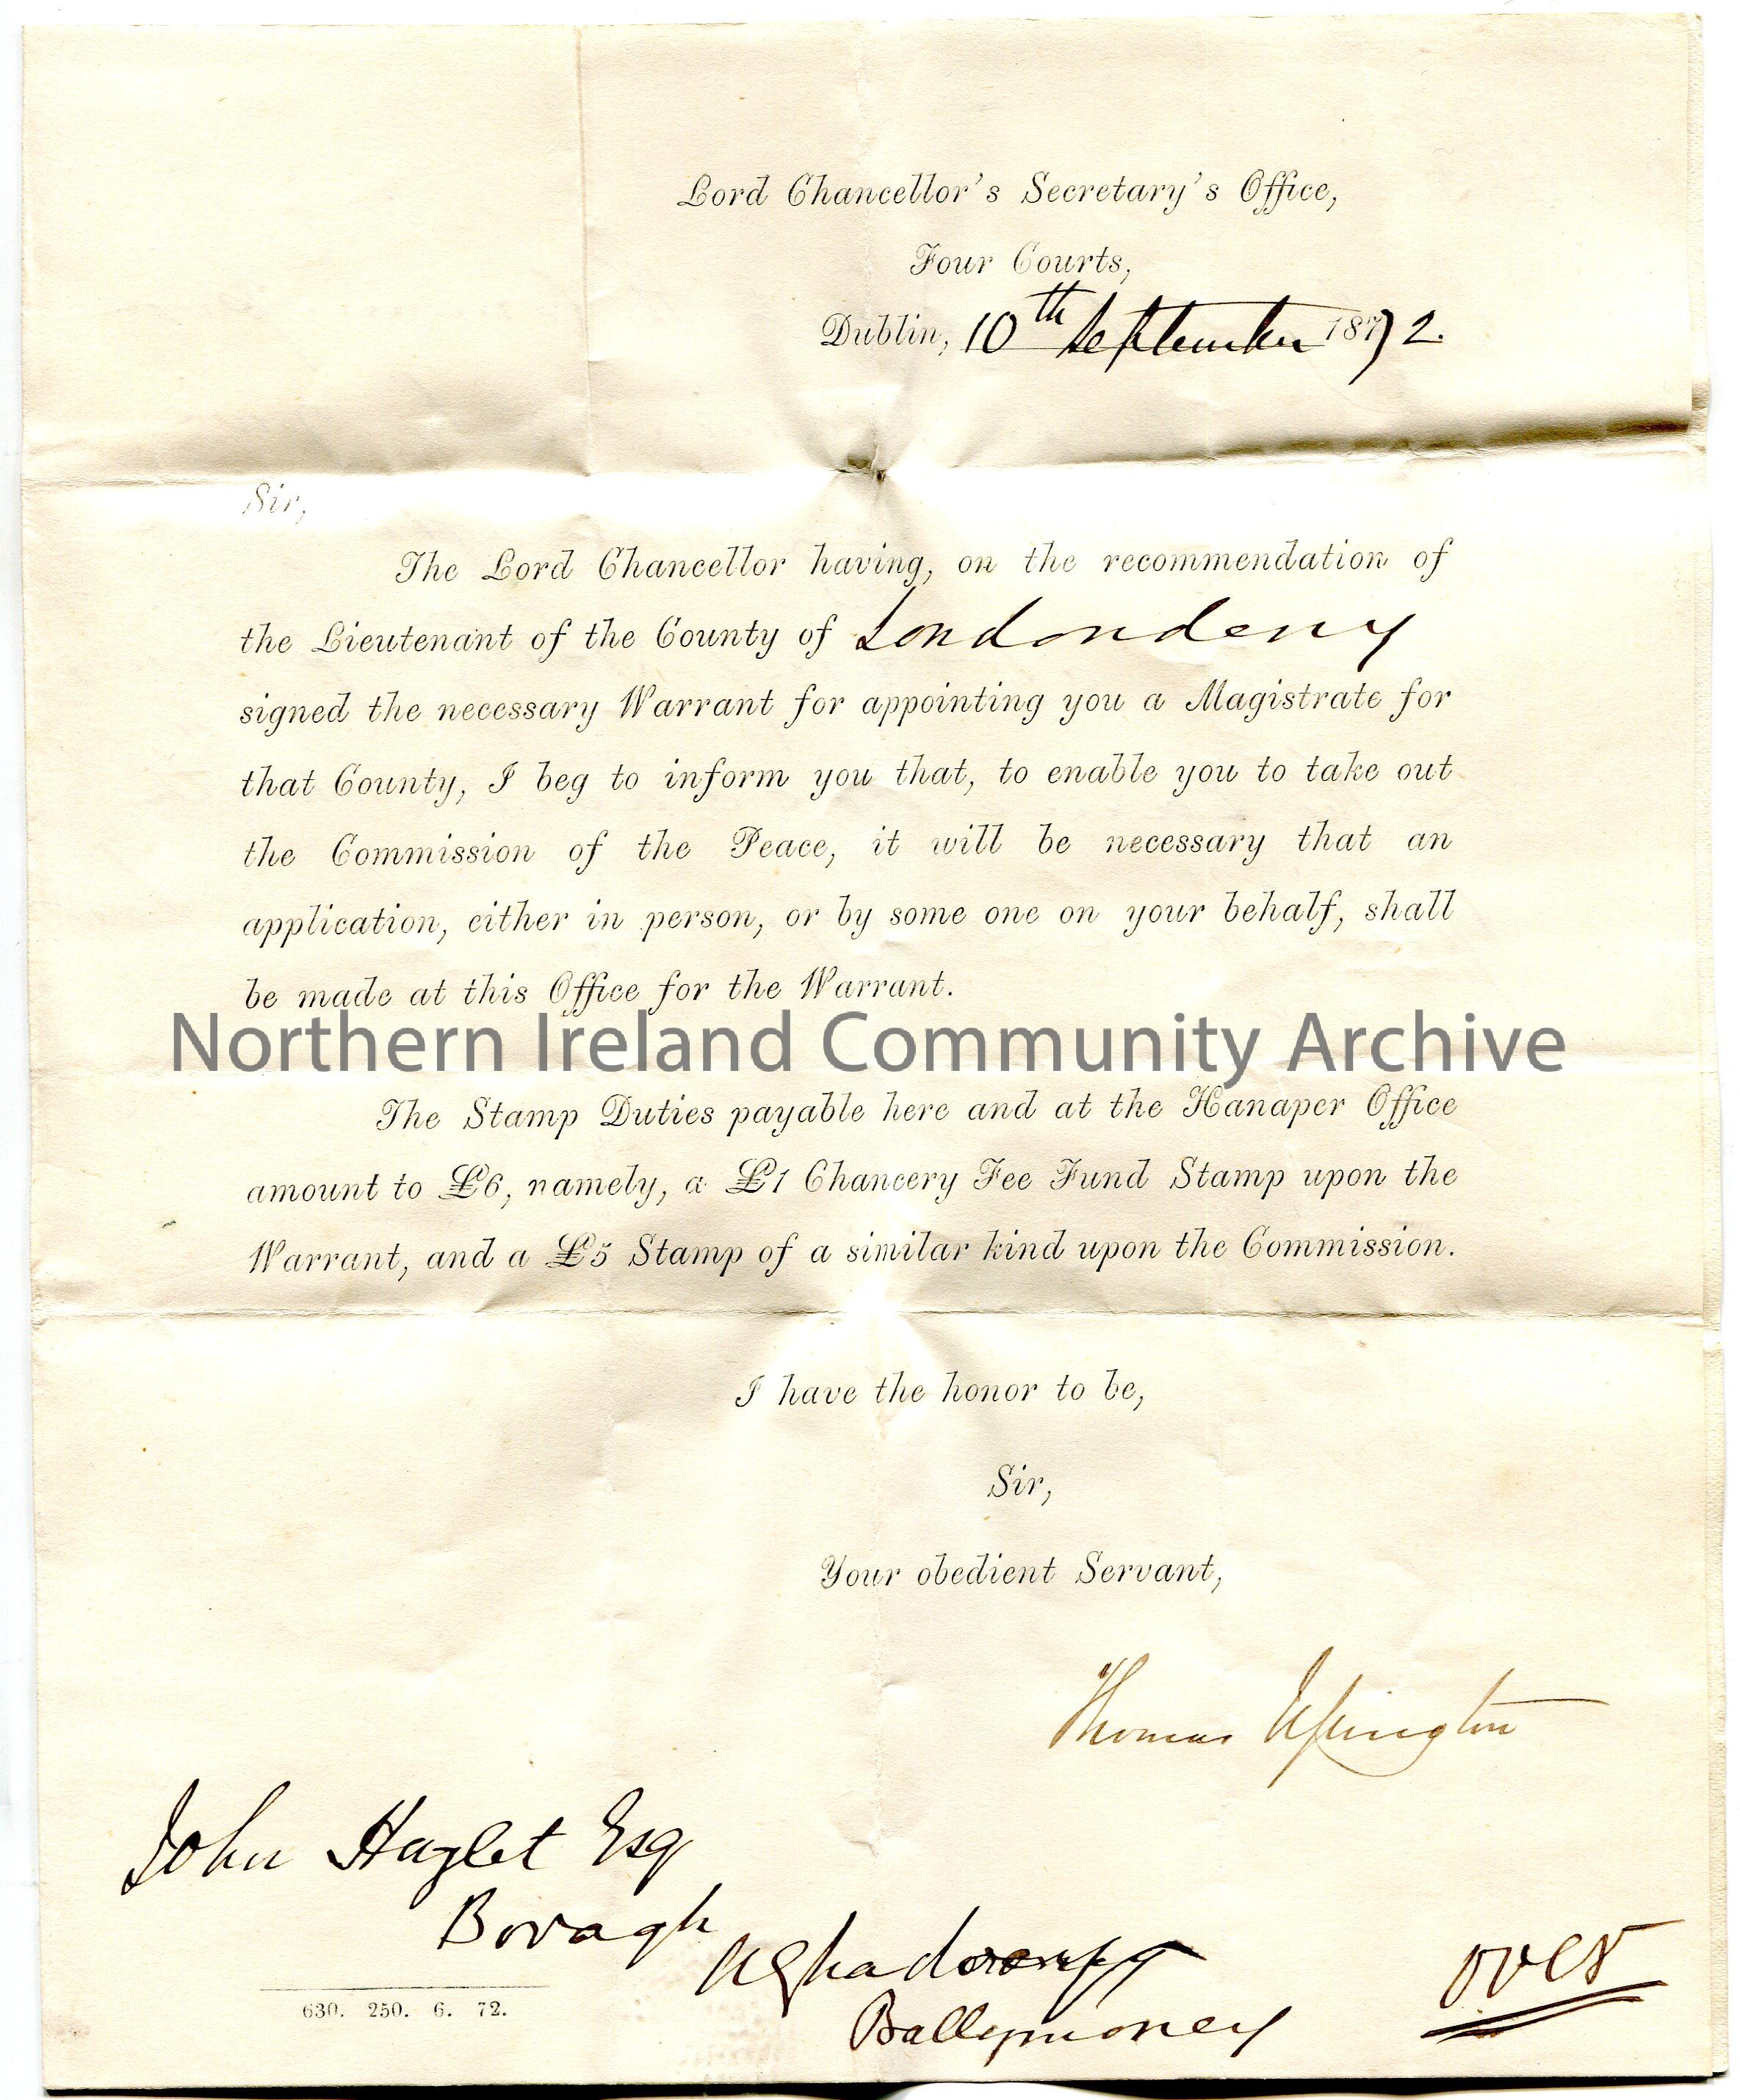 Lord Chancellor's Secretary's Office,
Four Courts,
Dublin, 10th September 1872.
Sir,
The Lord Chancellor having, on the recommendation of
the Lieutenant of the County of Londonderry
signed the necessary Warrant for appointing you a Magistrate for
that County, I beg to inform you that, to enable you to take out
the Commission of the Peace, it will be necessary that an
application, either in person, or by some one on your behalf, shall
be made at this Office for the Warrant.
Northern Ireland Community Archive
The Stamp Duties payable here and at the Hanaper Office
amount to £6, namely, a £1 Chancery Fee Fund Stamp upon the
Warrant, and a £5 Stamp of a similar kind upon the Commission.
I have the honor to be,
Sir,
Your obedient Servant,
Thomas
John Hazlet Esq
Bovagh
Ballymoney
over
630. 250. 6. 72.